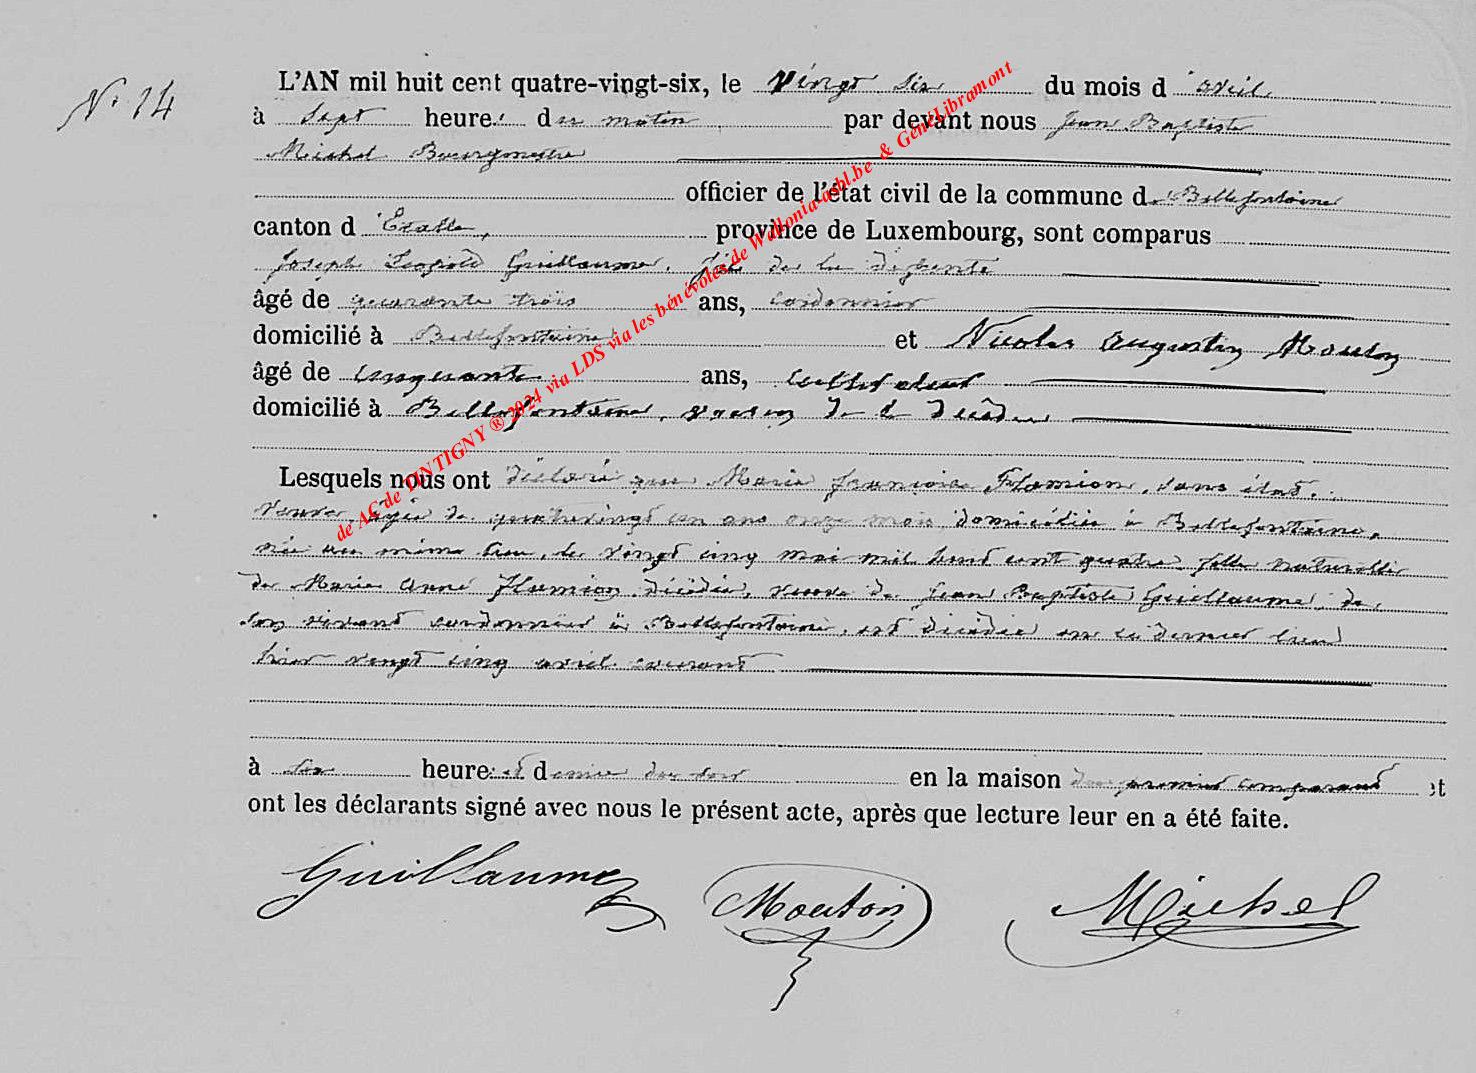 N° 14
L'AN mil huit cent quatre-vingt-six, le vingt six du mois d'avril
à sept heures du matin par devant nous Jean Baptiste
Michel Bourgmestre
officier de l'état civil de la commune de Bellefontaine
canton d'Etalle, province de Luxembourg, sont comparus
Joseph Léopold Guillaume, fils de la défunte
âgé de quarante trois ans, cordonnier
domicilié à Bellefontaine et Nicolas Augustin Mouton
âgé de cinquante ans, cultivateur
domicilié à Bellefontaine, voisin de la décédée
Lesquels nous ont déclaré que Marie Françoise Flamion, sans état,
veuve, âgée de quatrevingt un ans onze mois domiciliée à Bellefontaine,
née au même lieu, le vingt cinq mai mil huit cent quatre, fille naturelle
de Marie Anne Flamion, décédée, veuve de Jean Baptiste Guillaume, de
son vivant cordonnier à Bellefontaine, est décédée en ce dernier lieu
hier vingt cinq avril courant
à six heures et demie du soir en la maison du premier comparant et
ont les déclarants signé avec nous le présent acte, après que lecture leur en a été faite.
Guillaume Mouton Michel
de AC de TINTIGNY ® 2024 via LDS via les bénévoles de Wallonia-asbl.be & GénéLibramont